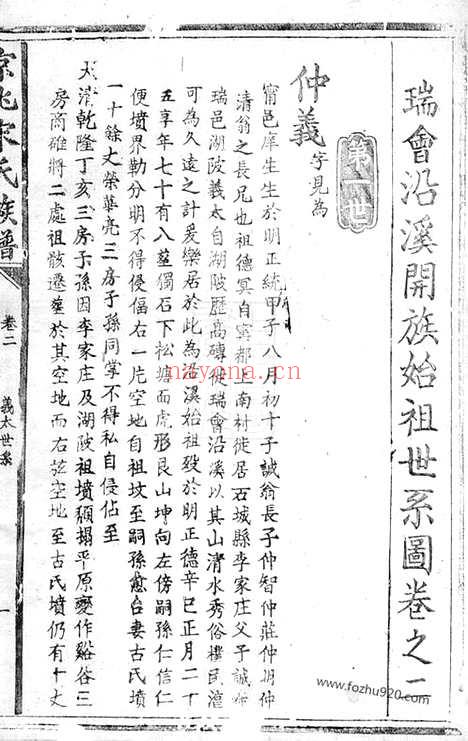 瑞會沿溪開族始祖世系圖卷之一
第一世
仲義字見為
甯邑庠生生於明正統甲子八月初十子誠翁長子仲智仲莊仲明仲
清翁之長兄也祖德冥自寧都上南村徙居石城縣李家庄父子誠
瑞邑湖陂義太自湖陂歷高磚徙瑞會沿溪以其山清水秀俗樸民淳
可為久遠之計爰樂居於此為沿溪始祖歿於明正德辛巳正月二丁
五享年七十有八葬獨石下松塘面虎形艮山坤向左傍嗣孫仁信仁
便墳界勒分明不得侵偪右一片空地自祖坟至嗣孫愈台妻古氏墳
一十餘丈榮華亮三房子孫同掌不得私自侵佔至
大清乾隆丁亥三房子孫因李家庄及湖陂祖墳頹塌平原變作谿谷三
房商確將二處祖骸遷葬於其空地而右空地至古氏墳仍有十丈
京兆宋氏族譜
卷二
義太世系
一
nayona.cn
www.fozhu920.com